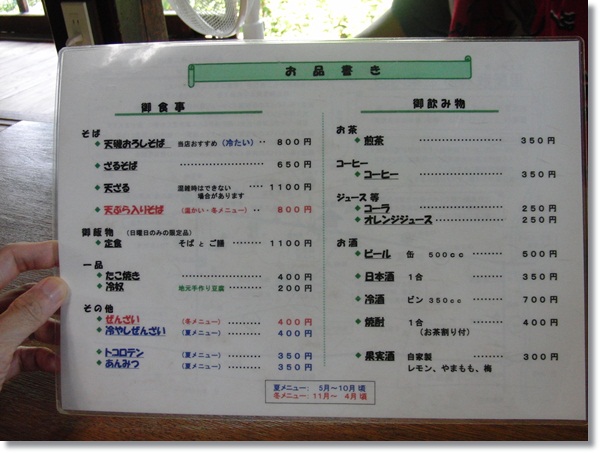 お品書き
御食事
そば
◆ 天磯おろしそば 当店おすすめ (冷たい) ‥ 800円
◆ ざるそば ‥‥‥‥‥‥‥ 650円
◆ 天ざる 混雑時はできない ‥‥ 1100円
場合があります
◆ 天ぷら入りそば (温かい・冬メニュー) ‥ 800円
御飯物 (日曜日のみの限定品)
◆ 定食 そば と ご膳 ‥‥‥‥ 1100円
一品
◆ たこ焼き ‥‥‥‥‥‥‥ 400円
◆ 冷奴 地元手作り豆腐 200円
その他
◆ ぜんざい (冬メニュー) ‥‥‥ 400円
◆ 冷やしぜんざい (夏メニュー) ‥‥‥ 400円
◆ トコロテン (夏メニュー) ‥‥‥ 350円
◆ あんみつ (夏メニュー) ‥‥‥ 350円
御飲み物
お茶
◆ 煎茶 ‥‥‥‥‥‥‥ 350円
コーヒー
◆ コーヒー ‥‥‥‥‥‥‥ 350円
ジュース等
◆ コーラ ‥‥‥‥‥‥‥ 250円
◆ オレンジジュース ‥‥‥‥‥‥‥ 250円
お酒
◆ ビール 缶 500cc ‥‥‥ 500円
◆ 日本酒 1合 ‥‥‥‥‥ 350円
◆ 冷酒 ビン 350cc ‥‥‥ 700円
◆ 焼酎 1合 ‥‥‥‥‥ 400円
(お茶割り付)
◆ 果実酒 自家製 ‥‥‥ 300円
レモン、やまもも、梅
夏メニュー: 5月~10月 頃
冬メニュー: 11月~ 4月 頃